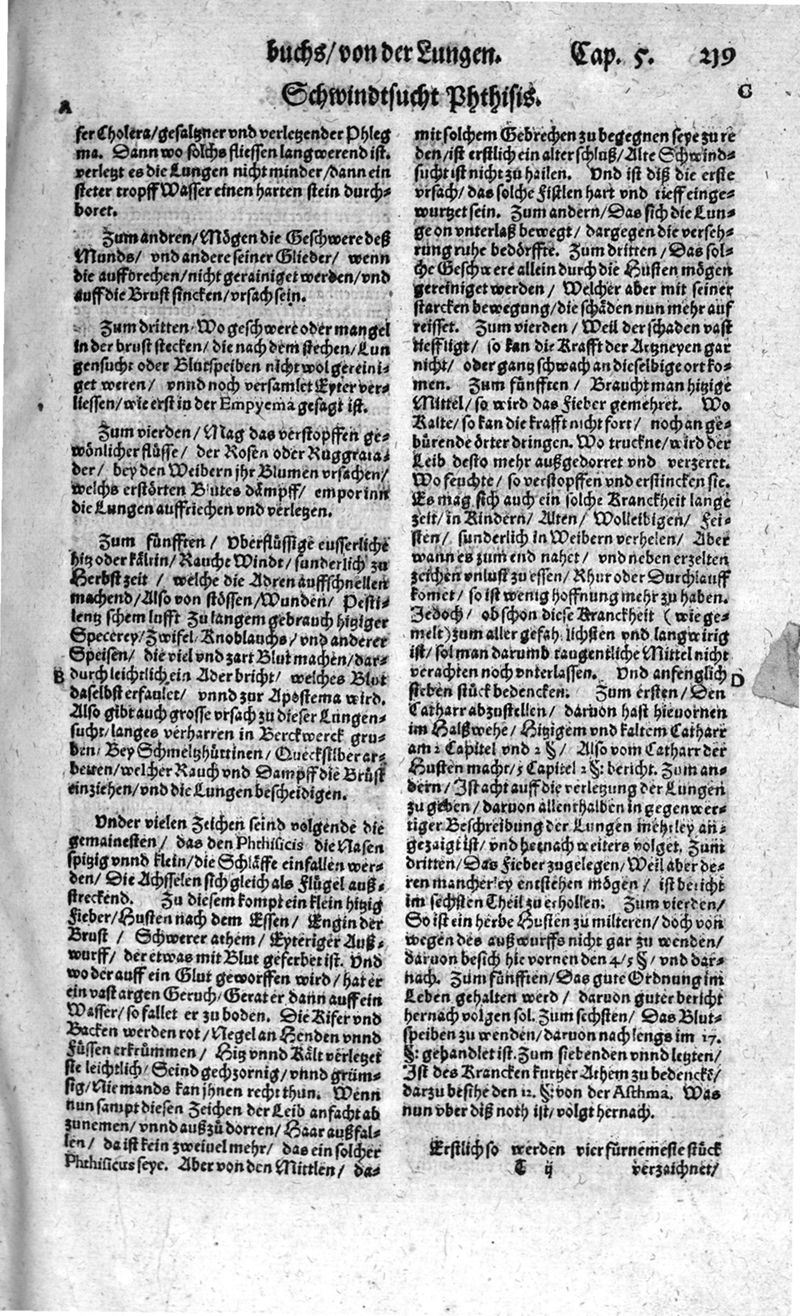 buchs/von der Lungen. Cap. 5. 219
Schwindtsucht Phthisis.
A
ser Cholera/gesaltzner vnd verletzender Phleg
ma. Dann wo solchs fliessen langwerend ist.
verletzt es die Lungen nicht minder/dann ein
steter tropff Wasser einen harten stein durch-
boret.
Zum andren/Mögen die Geschwere deß
Munds/ vnd andere seiner Glieder/ wenn
die auffbrechen/nicht gerainiget werden/vnd
auff die Brust sincken/vrsach sein.
Zum dritten. Wo geschwere oder mangel
in der brust stecken/die nach dem stechen/Lun
gensucht oder Blutspeiben nicht wol gereini-
get weren/ vnnd noch versamlet Eyter ver-
liessen/wie erst in der Empyema gesagt ist.
Zum vierden/ Mag das verstopffen ge-
wönlicher flüsse/ der Rosen oder Ruggrata-
der/ bey den Weibern jhr Blumen vrsachen/
welchs erstörten Blutes dämpff/ empor inn
die Lungen auffriechen vnd verletzen.
Zum fünfften/ Vberflüssige eusserliche
hitz oder kältin/Rauche Windt/sunderlich zu
Herbstzeit/ welche die Adren auffschnellen
machend/Also von stössen/Wunden/ Pesti-
lentzschem lufft Zu langem gebrauch hitziger
Specerey/Zwifel Knoblauchs/vnd anderer
Speisen/ die viel vnd zart Blut machen/dar-
B
durch leichtlich ein Ader bricht/ welches Blut
daselbst erfaulet/ vnnd zur Apostema wird.
Also gibt auch grosse vrsach zu dieser Lungen-
sucht/langes verharren in Berckwerck gru-
ben/Bey Schmeltzhüttinen/Queckstlber ar-
beiten/welcher Rauch vnd Dampff die Brüst
einziehen/vnd die Lungen bescheidigen.
Vnder vielen Zeichen seind volgende die
gemainesten/das den Phthisicis die Nasen
spitzig vnnd klein/die Schläffe einfallen wer-
den/ Die Achsselen sich gleich als Flügel auß-
streckend. Zu diesem kompt ein klein hitzig
Fieber/Husten nach dem Essen/ Engin der
Brust/ Schwerer athem/Eyteriger Auß-
wurff/ der etwas mit Blut geferbet ist. Vnd
wo der auff ein Glut geworffen wird/hat er
ein vast argen Geruch/Gerat er dann auff ein
Wasser/so fallet er zu boden. Die Kifer vnd
Backen werden rot/Negel an Henden vnnd
Füssen erkrümmen/ Hitz vnnd Kält verletzet
sie leichtlich/Seind gechzornig/vnnd grüm-
sig/Niemands kan jhnen recht thun. Wenn
nun sampt diesen Zeichen der Leib anfacht ab
zunemen/vnnd außzudorren/Haar außfal-
len/ da ist kein zweiuel mehr/das ein solcher
Phthisicus seye. Aber von den Mittlen/ da-
C
mit solchem Gebrechen zu begegnen seye zu re
den/ist erstlich ein alter schluß/Alte Schwind-
sucht ist nicht zu hailen. Vnd ist diß die erste
vrsach/das solche Fistlen hart vnd tieff einge-
wurtzet sein. Zum andern/Das sich die Lun-
ge on vnterlaß bewegt/dargegen die verseh-
rung ruhe bedörffte. Zum dritten/Das sol-
che Geschwere allein durch die Husten mögen
gereiniget werden/ Welcher aber mit seiner
starcken bewegung/die schäden nun mehr auf
reisset. Zum vierden/ Weil der schaden vast
tieff ligt/ so kan die Krafft der Artzneyen gar
nicht/oder gantz schwach an dieselbige ort ko-
men. Zum fünfften/ Braucht man hitzige
Mittel/so wird das Fieber gemehret. Wo
Kalte/so kan die krafft nicht fort/ noch an ge-
bürende örter dringen. Wo truckne/wird der
Leib desto mehr außgedorret vnd verzeret.
Wo feuchte/ so verstopffen vnd ersticken sie.
Es mag sich auch ein solche Kranckheit lange
zeit/in Kindern/ Alten/ Wolleibigen/ Fei-
sten/ sunderlich in Weibern verhelen/ Aber
wann es zum end nahet/ vnd neben erzelten
zeichen vnlust zu essen/Rhur oder Durchlauff
komet/so ist wenig hoffnung mehr zu haben.
Jedoch/ ob schon diese Kranckheit (wie ge-
melt) zum aller gefährlichsten vnd langwirig
ist/sol man darumb taugentliche Mittel nicht
verachten noch vnterlassen. Vnd anfenglich
D
sieben stück bedencken: Zum ersten/Den
Catharr abzustellen/ daruon hast hieuornen
im Halßwehe/Hitzigem vnd kaltem Catharr
am 2 Capitel vnd 2 §/ Also vom Catharr der
Husten macht/5 Capitel 2 §: bericht. Zum an-
dern/Ist acht auff die verletzung der Lungen
zu geben/daruon allenthalben in gegenwer-
tiger Beschreibung der Lungen mehrley an-
gezaigt ist/vnd hernach weiters volget. Zum
dritten/Das Fieber zugelegen/Weil aber de-
ren mancherley entstehen mögen/ ist bericht
im sechsten Theil zu erhollen: Zum vierden/
So ist ein herbe Husten zu milteren/doch von
wegen des außwurffs nicht gar zu wenden/
daruon besich hie vornen den 4/5 §/ vnd dar-
nach. Zum fünfften/Das gute Ordnung im
Leben gehalten werd/ daruon guter bericht
hernach volgen sol. Zum sechsten/ Das Blut-
speiben zu wenden/daruon nach lengs im 17.
§: gehandlet ist. Zum siebenden vnnd letzten/
Ist des Krancken kurtzer Athem zu bedencke/
darzu besihe den 12. §: von der Asthma. Was
nun vber diß noth ist/volgt hernach.
Erstlich so werden vier fürnemeste stück
T ij verzaichnet/